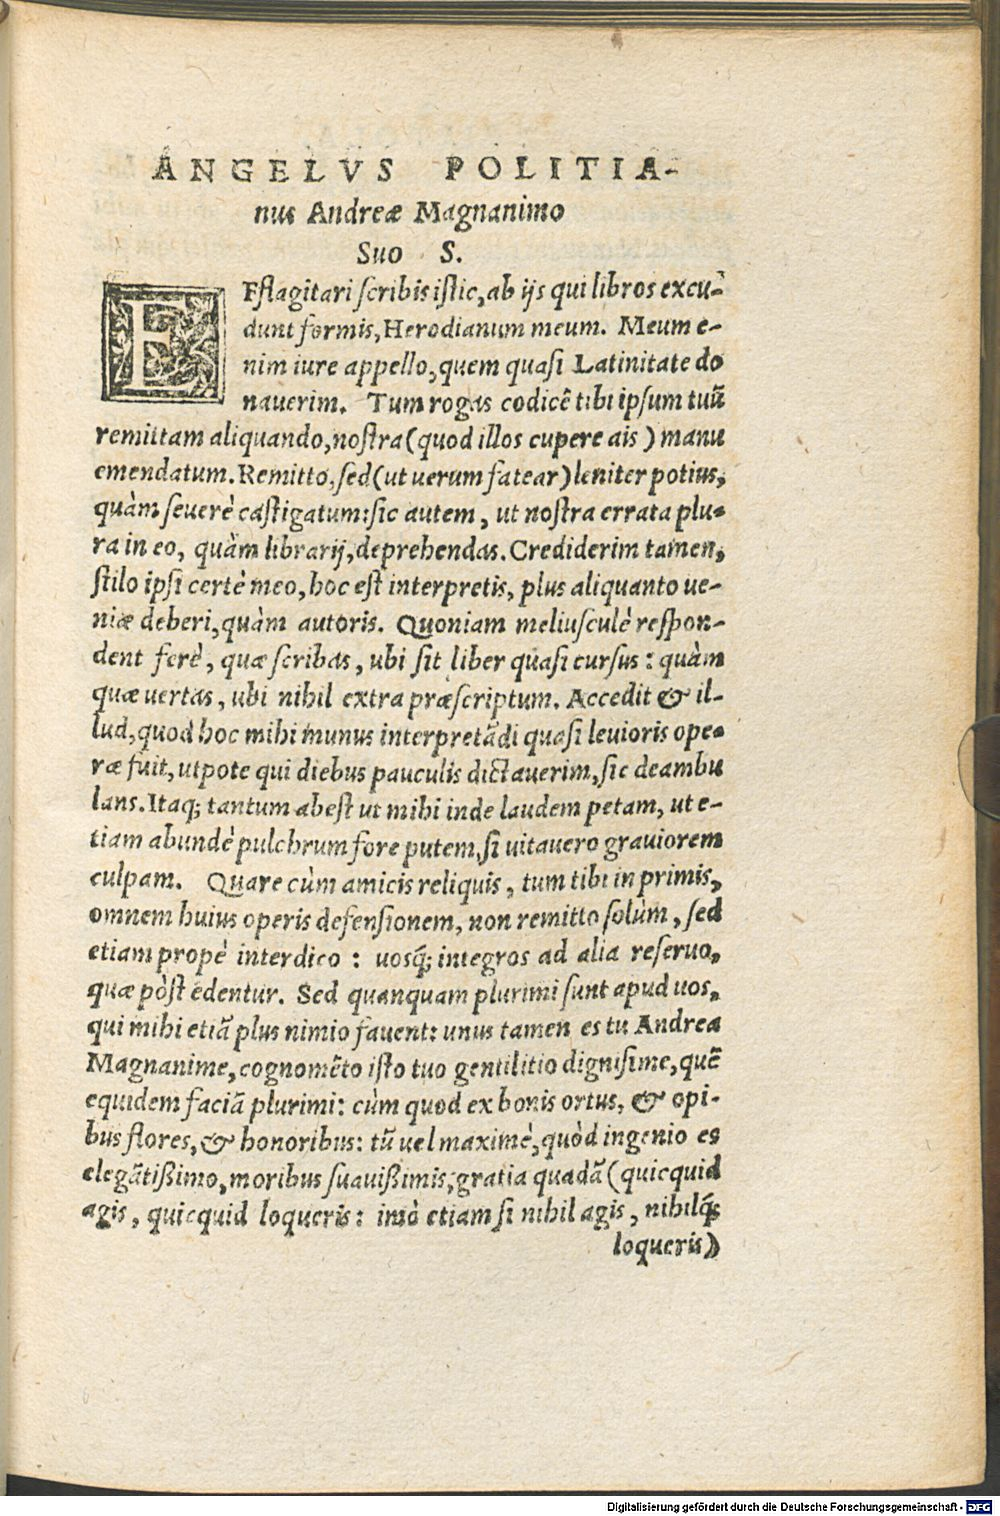 ANGELVS POLITIA-
nus Andreæ Magnanimo
Suo S.
EFflagitari scribis istic, ab ijs qui libros excu-
dunt formis, Herodianum meum. Meum e-
nim iure appello, quem quasi Latinitate do
nauerim. Tum rogas codicē tibi ipsum tuū
remittam aliquando, nostra (quod illos cupere ais) manu
emendatum. Remitto, sed (ut uerum fatear) leniter potius,
quàm seuerè castigatum: sic autem, ut nostra errata plu-
ra in eo, quàm librarij, deprehendas. Crediderim tamen,
stilo ipsi certè meo, hoc est interpretis, plus aliquanto ue-
niæ deberi, quàm autoris. Quoniam meliusculè respon-
dent ferè, quæ scribas, ubi sit liber quasi cursus: quàm
quæ uertas, ubi nihil extra præscriptum. Accedit & il-
lud, quod hoc mihi munus interpretādi quasi leuioris ope-
ræ fuit, utpote qui diebus pauculis dictauerim, sic deambu
lans. Itaq; tantum abest ut mihi inde laudem petam, ut e-
tiam abundè pulchrum fore putem, si uitauero grauiorem
culpam. Quare cùm amicis reliquis, tum tibi in primis,
omnem huius operis defensionem, non remitto solùm, sed
etiam propè interdico: uosq́; integros ad alia reseruo,
quæ pòst edentur. Sed quanquam plurimi sunt apud uos,
qui mihi etiā plus nimio fauent: unus tamen es tu Andrea
Magnanime, cognomēto isto tuo gentilitio dignißime, quē
equidem faciā plurimi: cùm quod ex bonis ortus, & opi-
bus flores, & honoribus: tū uel maximè, quòd ingenio es
elegātißimo, moribus suauißimis, gratia quadā (quicquid
agis, quicquid loqueris: imò etiam si nihil agis, nihilq́;
loqueris)
Digitalisierung gefördert durch die Deutsche Forschungsgemeinschaft - DFG